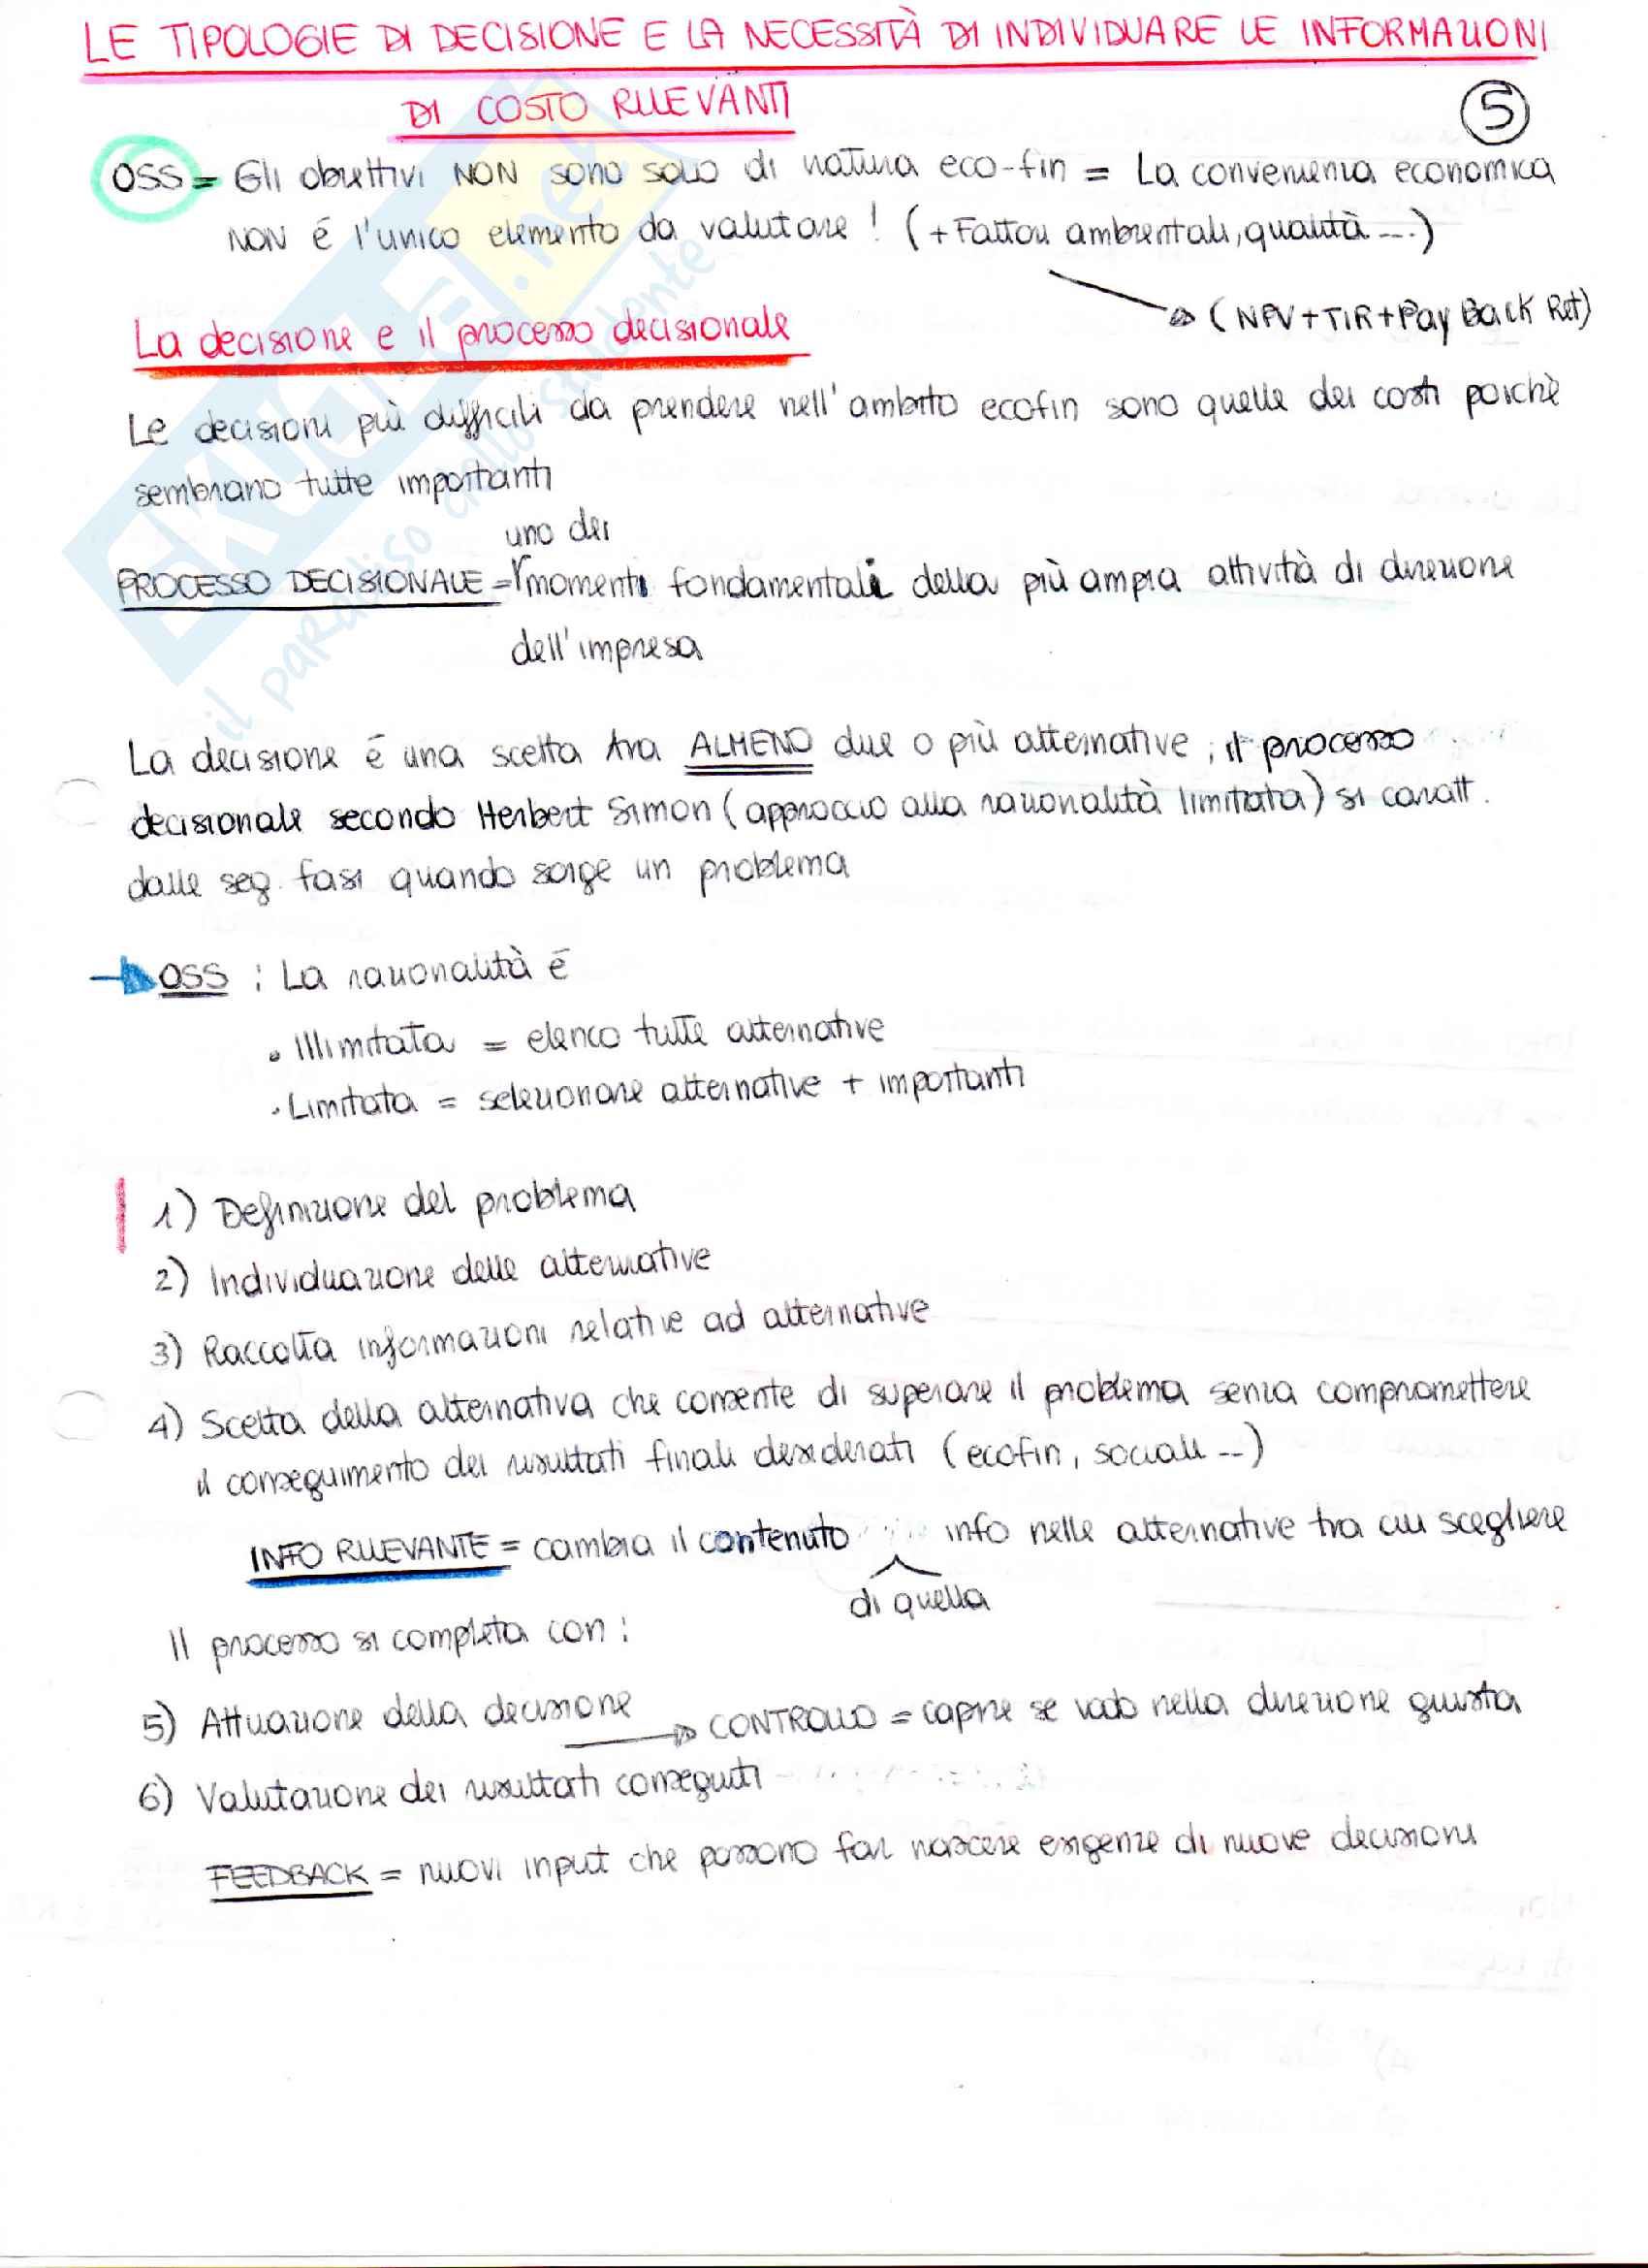 LE TIPOLOGIE DI DECISIONE E LA NECESSITÀ DI INDIVIDUARE LE INFORMAZIONI
DI COSTO RILEVANTI
5
OSS = Gli obiettivi NON sono solo di natura eco-fin = La convenienza economica
NON é l'unico elemento da valutare! (+ Fattori ambientali, qualità ...)
(NPV + TIR + Pay Back Ret)
La decisione e il processo decisionale
Le decisioni più difficili da prendere nell'ambito ecofin sono quelle dei costi poichè
sembrano tutte importanti
uno dei
PROCESSO DECISIONALE = momenti fondamentali della più ampia attività di direzione
dell'impresa
La decisione é una scelta tra ALMENO due o più alternative, il processo
decisionale secondo Herbert Simon (approccio alla razionalità limitata) si caratt.
dalle seg. fasi quando sorge un problema
OSS : La razionalità é
• Illimitata = elenco tutte alternative
• Limitata = selezionare alternative + importanti
1) Definizione del problema
2) Individuazione delle alternative
3) Raccolta informazioni relative ad alternative
4) Scelta della alternativa che consente di superare il problema senza compromettere
il conseguimento dei risultati finali desiderati (ecofin, sociali ...)
INFO RILEVANTE = cambia il contenuto info nelle alternative tra cui scegliere
di quella
Il processo si completa con :
5) Attuazione della decisione
CONTROLLO = capire se vado nella direzione giusta
6) Valutazione dei risultati conseguiti
FEEDBACK = nuovi input che possono far nascere esigenze di nuove decisioni
skuola.net
il paradiso dello studente